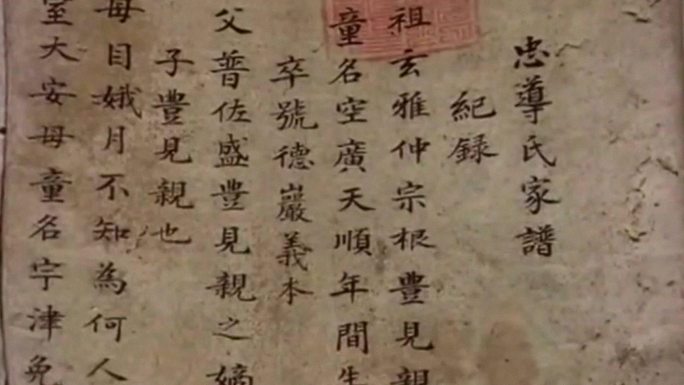 忠導氏家譜
紀録
祖玄雅仲宗根豊見親
童名空廣天順年間生
卒號德巖義本
父普佐盛豊見親之嫡
子豊見親也
母目娥月不知為何人
室大安母童名宇津免